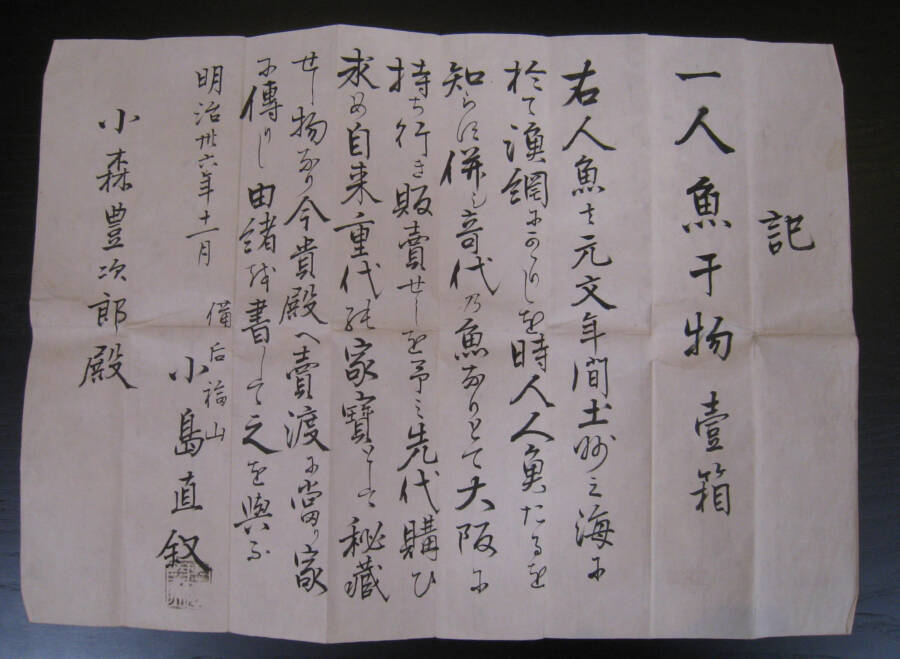 記
一人魚干物 壹箱
右人魚ハ元文年間土州之海に
於て漁網にかゝりしを時人人魚たるを
知らず併し奇代乃魚なりとて大阪に
持ち行き販賣せしを予之先代購ひ
求め自来重代の家寶として秘藏
せし物なり今貴殿へ賣渡に當り家
に傳りし由緒を書して之を與ふ
明治卅六年十一月
備后福山
小島直叙
小森豊次郎殿